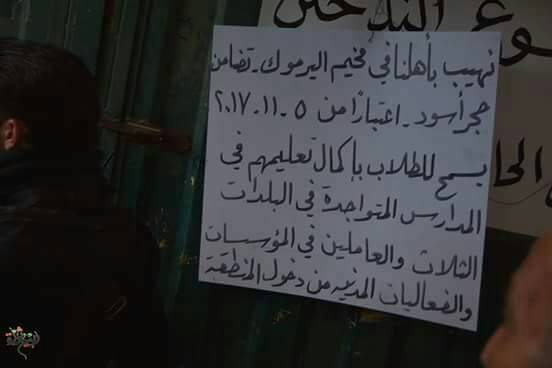 ممنوع التدخين
نهيب بأهلنا في مخيم اليرموك - تضامن
حجر أسود - اعتبارًا من ٥ - ١١ - ٢٠١٧
يسمح للطلاب بإكمال تعليمهم في
المدارس المتواجدة في البلدات
الثلاث والعاملين في المؤسسات
والفعاليات المدنية من دخول المنطقة